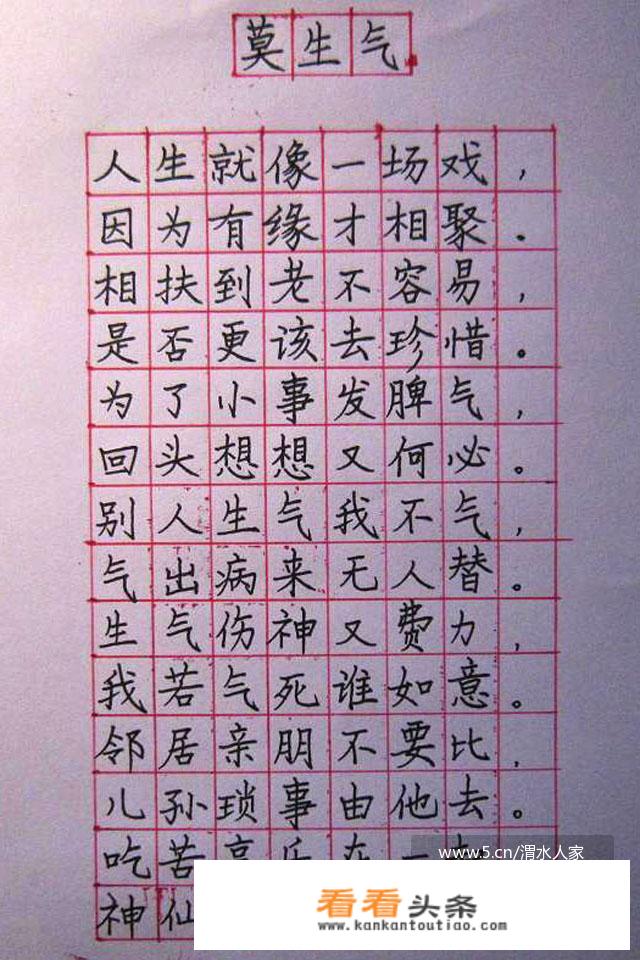 莫生气
人生就像一场戏，
因为有缘才相聚．
相扶到老不容易，
是否更该去珍惜。
为了小事发脾气，
回头想想又何必。
别人生气我不气，
气出病来无人替。
生气伤神又费力，
我若气死谁如意。
邻居亲朋不要比，
儿孙琐事由他去。
吃苦享乐在一
www.5.cn/渭水人家
神仙
看看头条
www.kankantoutiao.com